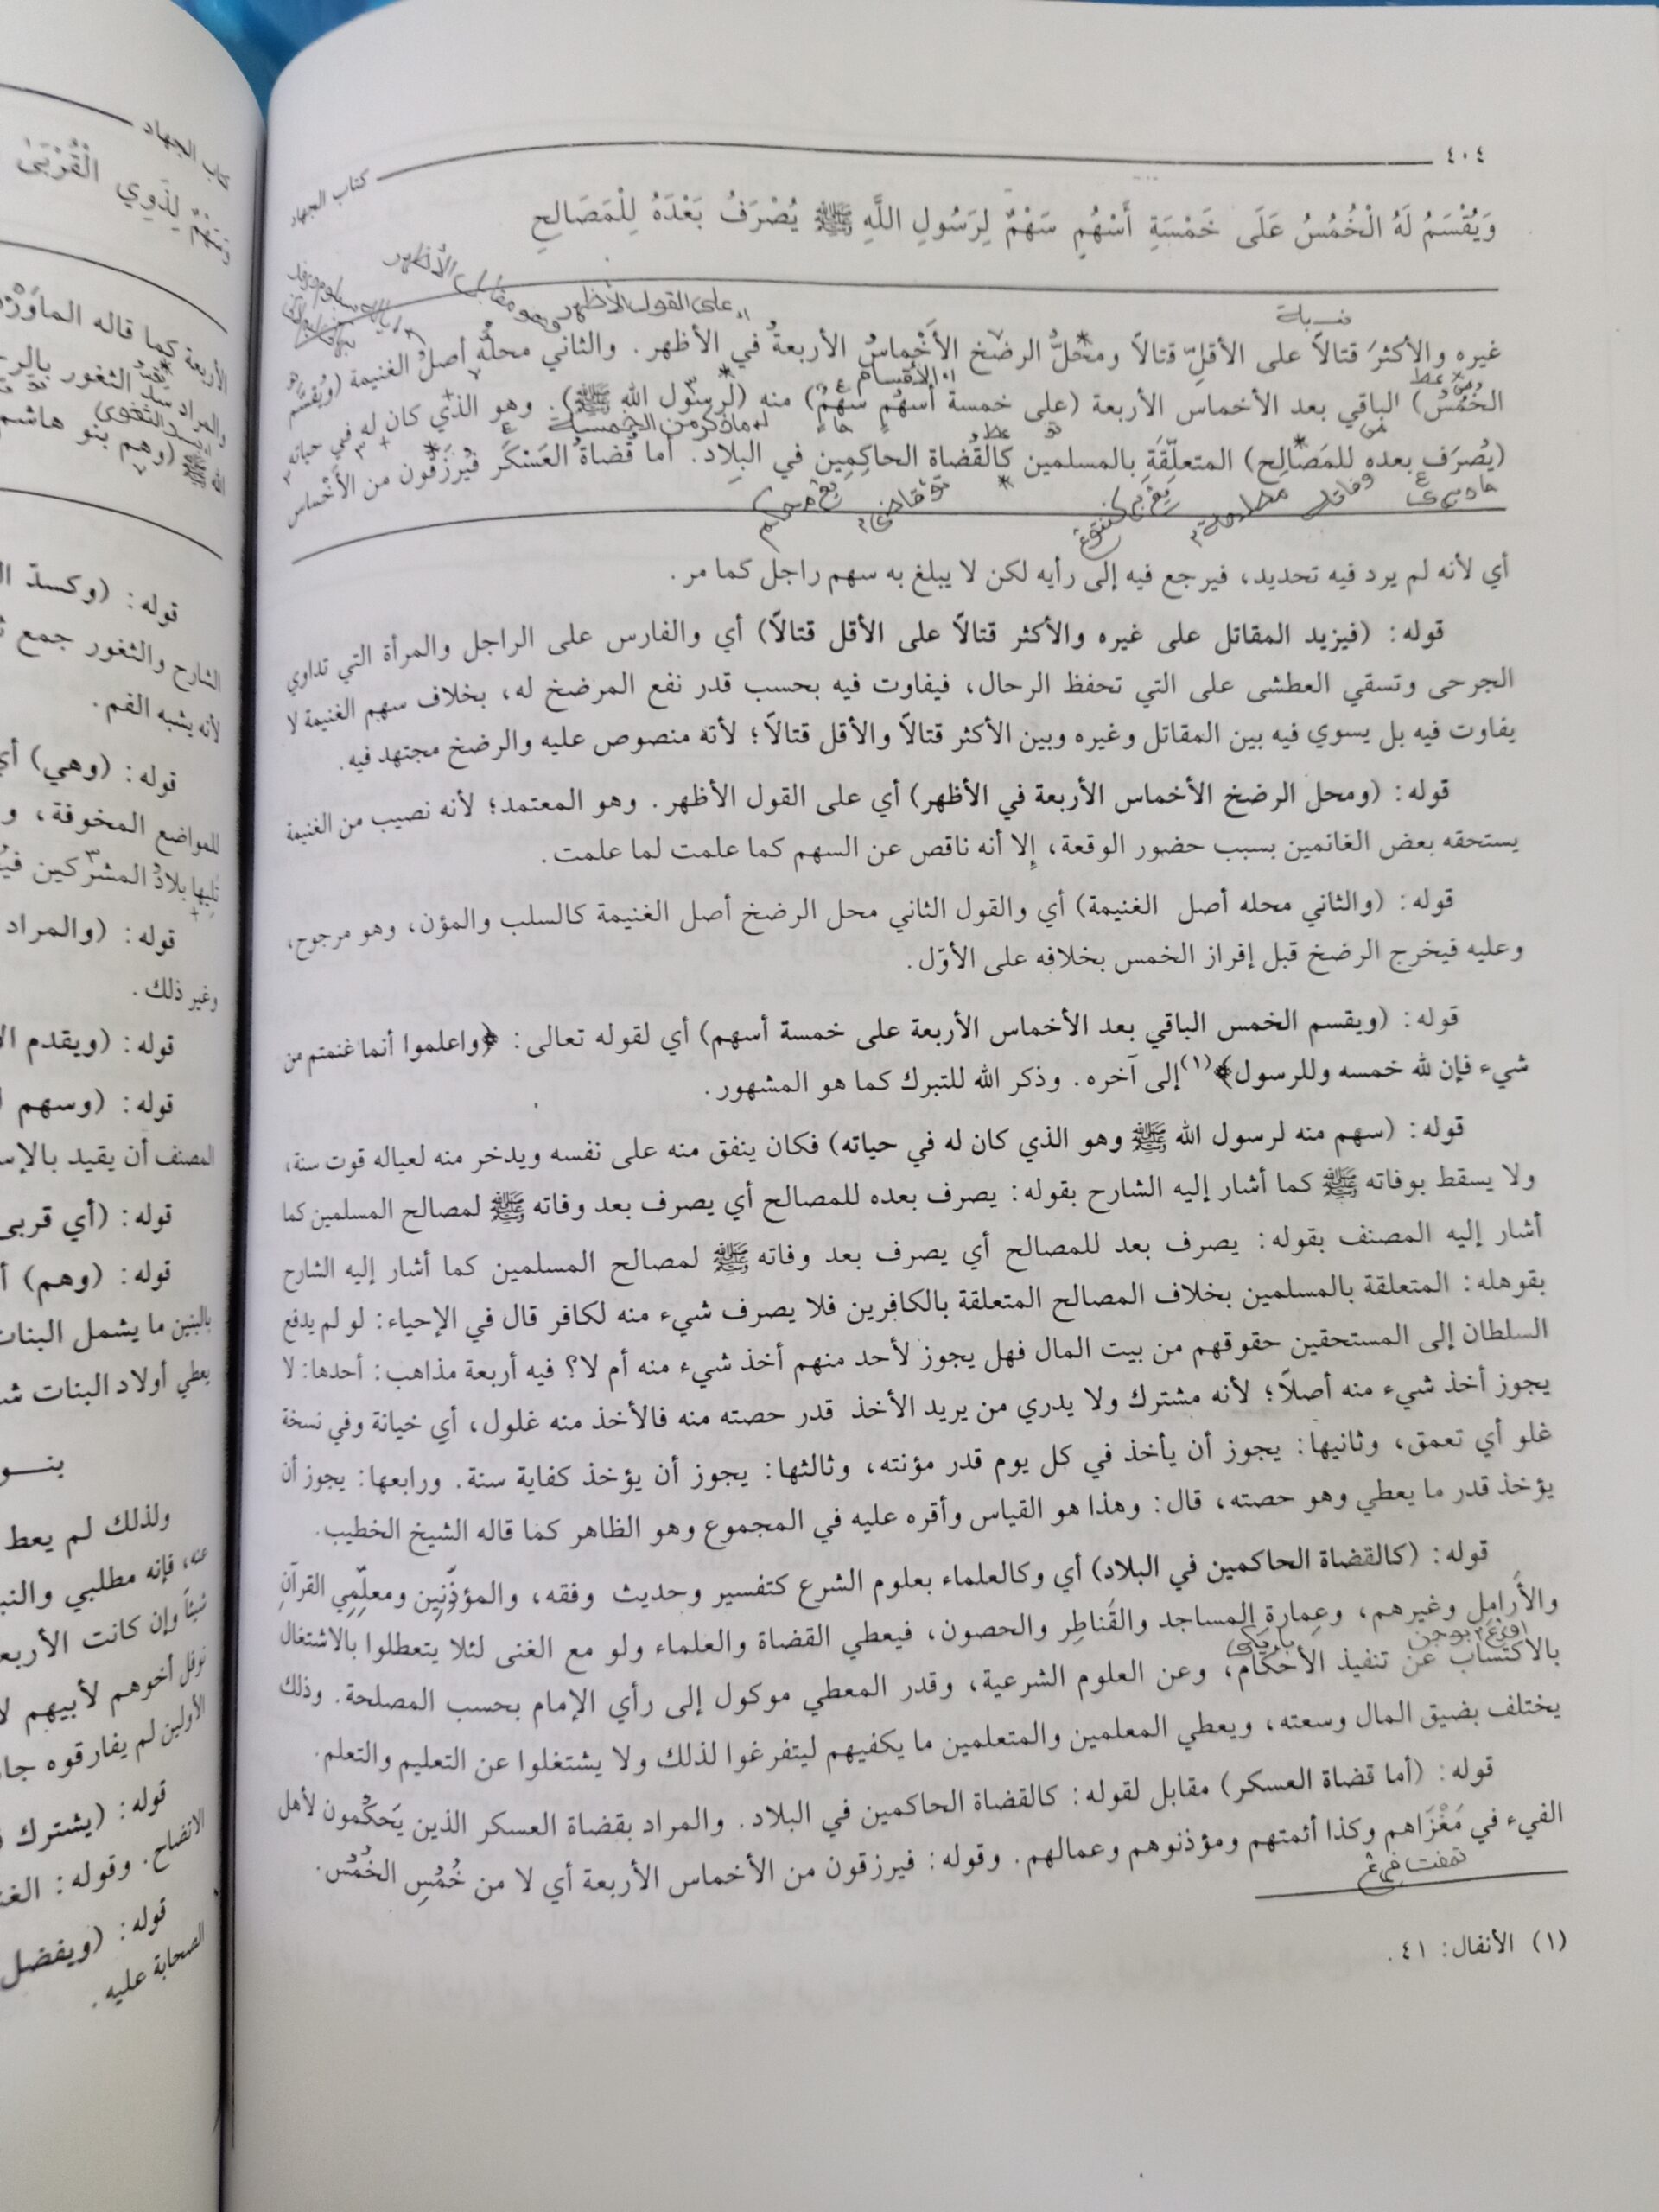 ٤٠٤
كتاب الجهاد
وَيُقْسَمُ لَهُ الْخُمُسُ عَلَى خَمْسَةِ أَسْهُمٍ سَهْمٌ لِرَسُولِ اللَّهِ ﷺ يُصْرَفُ بَعْدَهُ لِلْمَصَالِحِ
على القول الأظهر وهو مقابل الأظهر
غيره والأكثرَ قتالاً على الأقلّ قتالاً ومحلُّ الرضخ الأَخْماسُ الأربعةُ في الأظهر. والثاني محلُّه أصلُ الغنيمة (ويُقسَّم
الأقسام
الخُمُسُ) الباقي بعد الأخماس الأربعة (على خمسة أسهُمٍ سهمٌ) منه (لرسول الله ﷺ). وهو الذي كان له في حياته
ما ذكر من الخمسة
(يُصرَف بعده للمَصَالِح) المتعلِّقَةِ بالمسلمين كالقُضاة الحاكِمِين في البِلاد. أما قُضاةُ العَسْكَر فيُرزَقُون من الأَخْماس
أي لأنه لم يرد فيه تحديد، فيرجع فيه إلى رأيه لكن لا يبلغ به سهم راجل كما مر.
قوله: (فيزيد المقاتل على غيره والأكثر قتالاً على الأقل قتالاً) أي والفارس على الراجل والمرأة التي تداوي
الجرحى وتسقي العطشى على التي تحفظ الرحال، فيفاوت فيه بحسب قدر نفع المرضخ له، بخلاف سهم الغنيمة لا
يفاوت فيه بل يسوي فيه بين المقاتل وغيره وبين الأكثر قتالاً والأقل قتالاً؛ لأنه منصوص عليه والرضخ مجتهد فيه.
قوله: (ومحل الرضخ الأخماس الأربعة في الأظهر) أي على القول الأظهر. وهو المعتمد؛ لأنه نصيب من الغنيمة
يستحقه بعض الغانمين بسبب حضور الوقعة، إلا أنه ناقص عن السهم كما علمت لما علمت.
قوله: (والثاني محله أصل الغنيمة) أي والقول الثاني محل الرضخ أصل الغنيمة كالسلب والمؤن، وهو مرجوح،
وعليه فيخرج الرضخ قبل إفراز الخمس بخلافه على الأوّل.
قوله: (ويقسم الخمس الباقي بعد الأخماس الأربعة على خمسة أسهم) أي لقوله تعالى: ﴿واعلموا أنما غنمتم من
شيء فإن لله خمسه وللرسول﴾(١) إلى آخره. وذكر الله للتبرك كما هو المشهور.
قوله: (سهم منه لرسول الله ﷺ وهو الذي كان له في حياته) فكان ينفق منه على نفسه ويدخر منه لعياله قوت سنة،
ولا يسقط بوفاته ﷺ كما أشار إليه الشارح بقوله: يصرف بعده للمصالح أي يصرف بعد وفاته ﷺ لمصالح المسلمين كما
أشار إليه المصنف بقوله: يصرف بعد للمصالح أي يصرف بعد وفاته ﷺ لمصالح المسلمين كما أشار إليه الشارح
بقوهله: المتعلقة بالمسلمين بخلاف المصالح المتعلقة بالكافرين فلا يصرف شيء منه لكافر قال في الإحياء: لو لم يدفع
السلطان إلى المستحقين حقوقهم من بيت المال فهل يجوز لأحد منهم أخذ شيء منه أم لا؟ فيه أربعة مذاهب: أحدها: لا
يجوز أخذ شيء منه أصلاً؛ لأنه مشترك ولا يدري من يريد الأخذ قدر حصته منه فالأخذ منه غلول، أي خيانة وفي نسخة
غلو أي تعمق، وثانيها: يجوز أن يأخذ في كل يوم قدر مؤنته، وثالثها: يجوز أن يؤخذ كفاية سنة. ورابعها: يجوز أن
يؤخذ قدر ما يعطي وهو حصته، قال: وهذا هو القياس وأقره عليه في المجموع وهو الظاهر كما قاله الشيخ الخطيب.
قوله: (كالقضاة الحاكمين في البلاد) أي وكالعلماء بعلوم الشرع كتفسير وحديث وفقه، والمؤذِّنِين ومعلِّمِي القرآنِ
والأرامِلِ وغيرهم، وعِمارةِ المساجد والقَناطِرِ والحصون، فيعطي القضاة والعلماء ولو مع الغنى لئلا يتعطلوا بالاشتغال
بالاكتساب عن تنفيذ الأحكام، وعن العلوم الشرعية، وقدر المعطي موكول إلى رأي الإمام بحسب المصلحة. وذلك
يختلف بضيق المال وسعته، ويعطي المعلمين والمتعلمين ما يكفيهم ليتفرغوا لذلك ولا يشتغلوا عن التعليم والتعلم.
قوله: (أما قضاة العسكر) مقابل لقوله: كالقضاة الحاكمين في البلاد. والمراد بقضاة العسكر الذين يَحكُمون لأهل
الفيء في مَغْزَاهم وكذا أئمتهم ومؤذنوهم وعمالهم. وقوله: فيرزقون من الأخماس الأربعة أي لا من خُمُسِ الخُمُس.
(١) الأنفال: ٤١.
كتاب الجهاد
وَسَهْمٌ لِذَوِي الْقُرْبَىٰ
الأربعة كما قاله الماوَرْدِ
والمراد سد الثغور بالر
(وهم بنو هاشم
قوله: (وكسدّ
الشارح والثغور جمع
لأنه يشبه الفم.
قوله: (وهي) أي
للمواضع المخوفة، و
تليها بلادُ المشركين
قوله: (والمراد
وغير ذلك.
قوله: (ويقدم
قوله: (وسهم
المصنف أن يقيد بالإس
قوله: (أي قربى
قوله: (وهم)
بالبنين ما يشمل البنات
يعطي أولاد البنات
بنـــو
ولذلك لم يعط
عنه، فإنه مطلبي والنب
شيئاً وإن كانت الأربع
نوفل أخوهم لأبيهم
الأولين لم يفارقوه
قوله: (يشترك
الاتضاح. وقوله:
قوله: (ويفضل
الصحابة عليه.